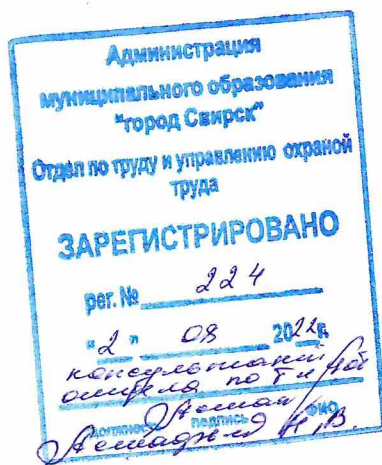 Администрация
муниципального образования
"город Свирск"
Отдел по труду и управлению охраной
труда
ЗАРЕГИСТРИРОВАНО
рег. № 224
"2" 08 2022г.
консультант
отдела по Т и
должность подпись ФИО
Н.В.